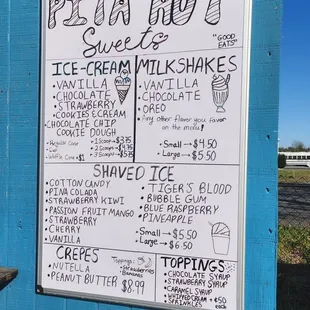 PITA HUT
Sweets
"GOOD EATS"
ICE-CREAM
• VANILLA
• CHOCOLATE
• STRAWBERRY
• COOKIES & CREAM
• CHOCOLATE CHIP
COOKIE DOUGH
Regular Cone
Cup
Waffle Cone $1
1 Scoop $3.75
2 Scoop $4.75
3 Scoop $5.75
MILKSHAKES
• VANILLA
• CHOCOLATE
• OREO
Any other flavor you favor
on the menu!
Small → $4.50
Large → $5.50
SHAVED ICE
• COTTON CANDY
• PINA COLADA
• STRAWBERRY KIWI
• PASSION FRUIT MANGO
• STRAWBERRY
• CHERRY
• VANILLA
• TIGER'S BLOOD
• BUBBLE GUM
• BLUE RASPBERRY
• PINEAPPLE
Small → $5.50
Large → $6.50
CREPES
• NUTELLA
• PEANUT BUTTER
Toppings
• Strawberries
• Bananas
$8.99
TOPPINGS
• CHOCOLATE SYRUP
• STRAWBERRY SYRUP
• CARAMEL SYRUP
• WHIPPED CREAM
• SPRINKLES
¢50 each